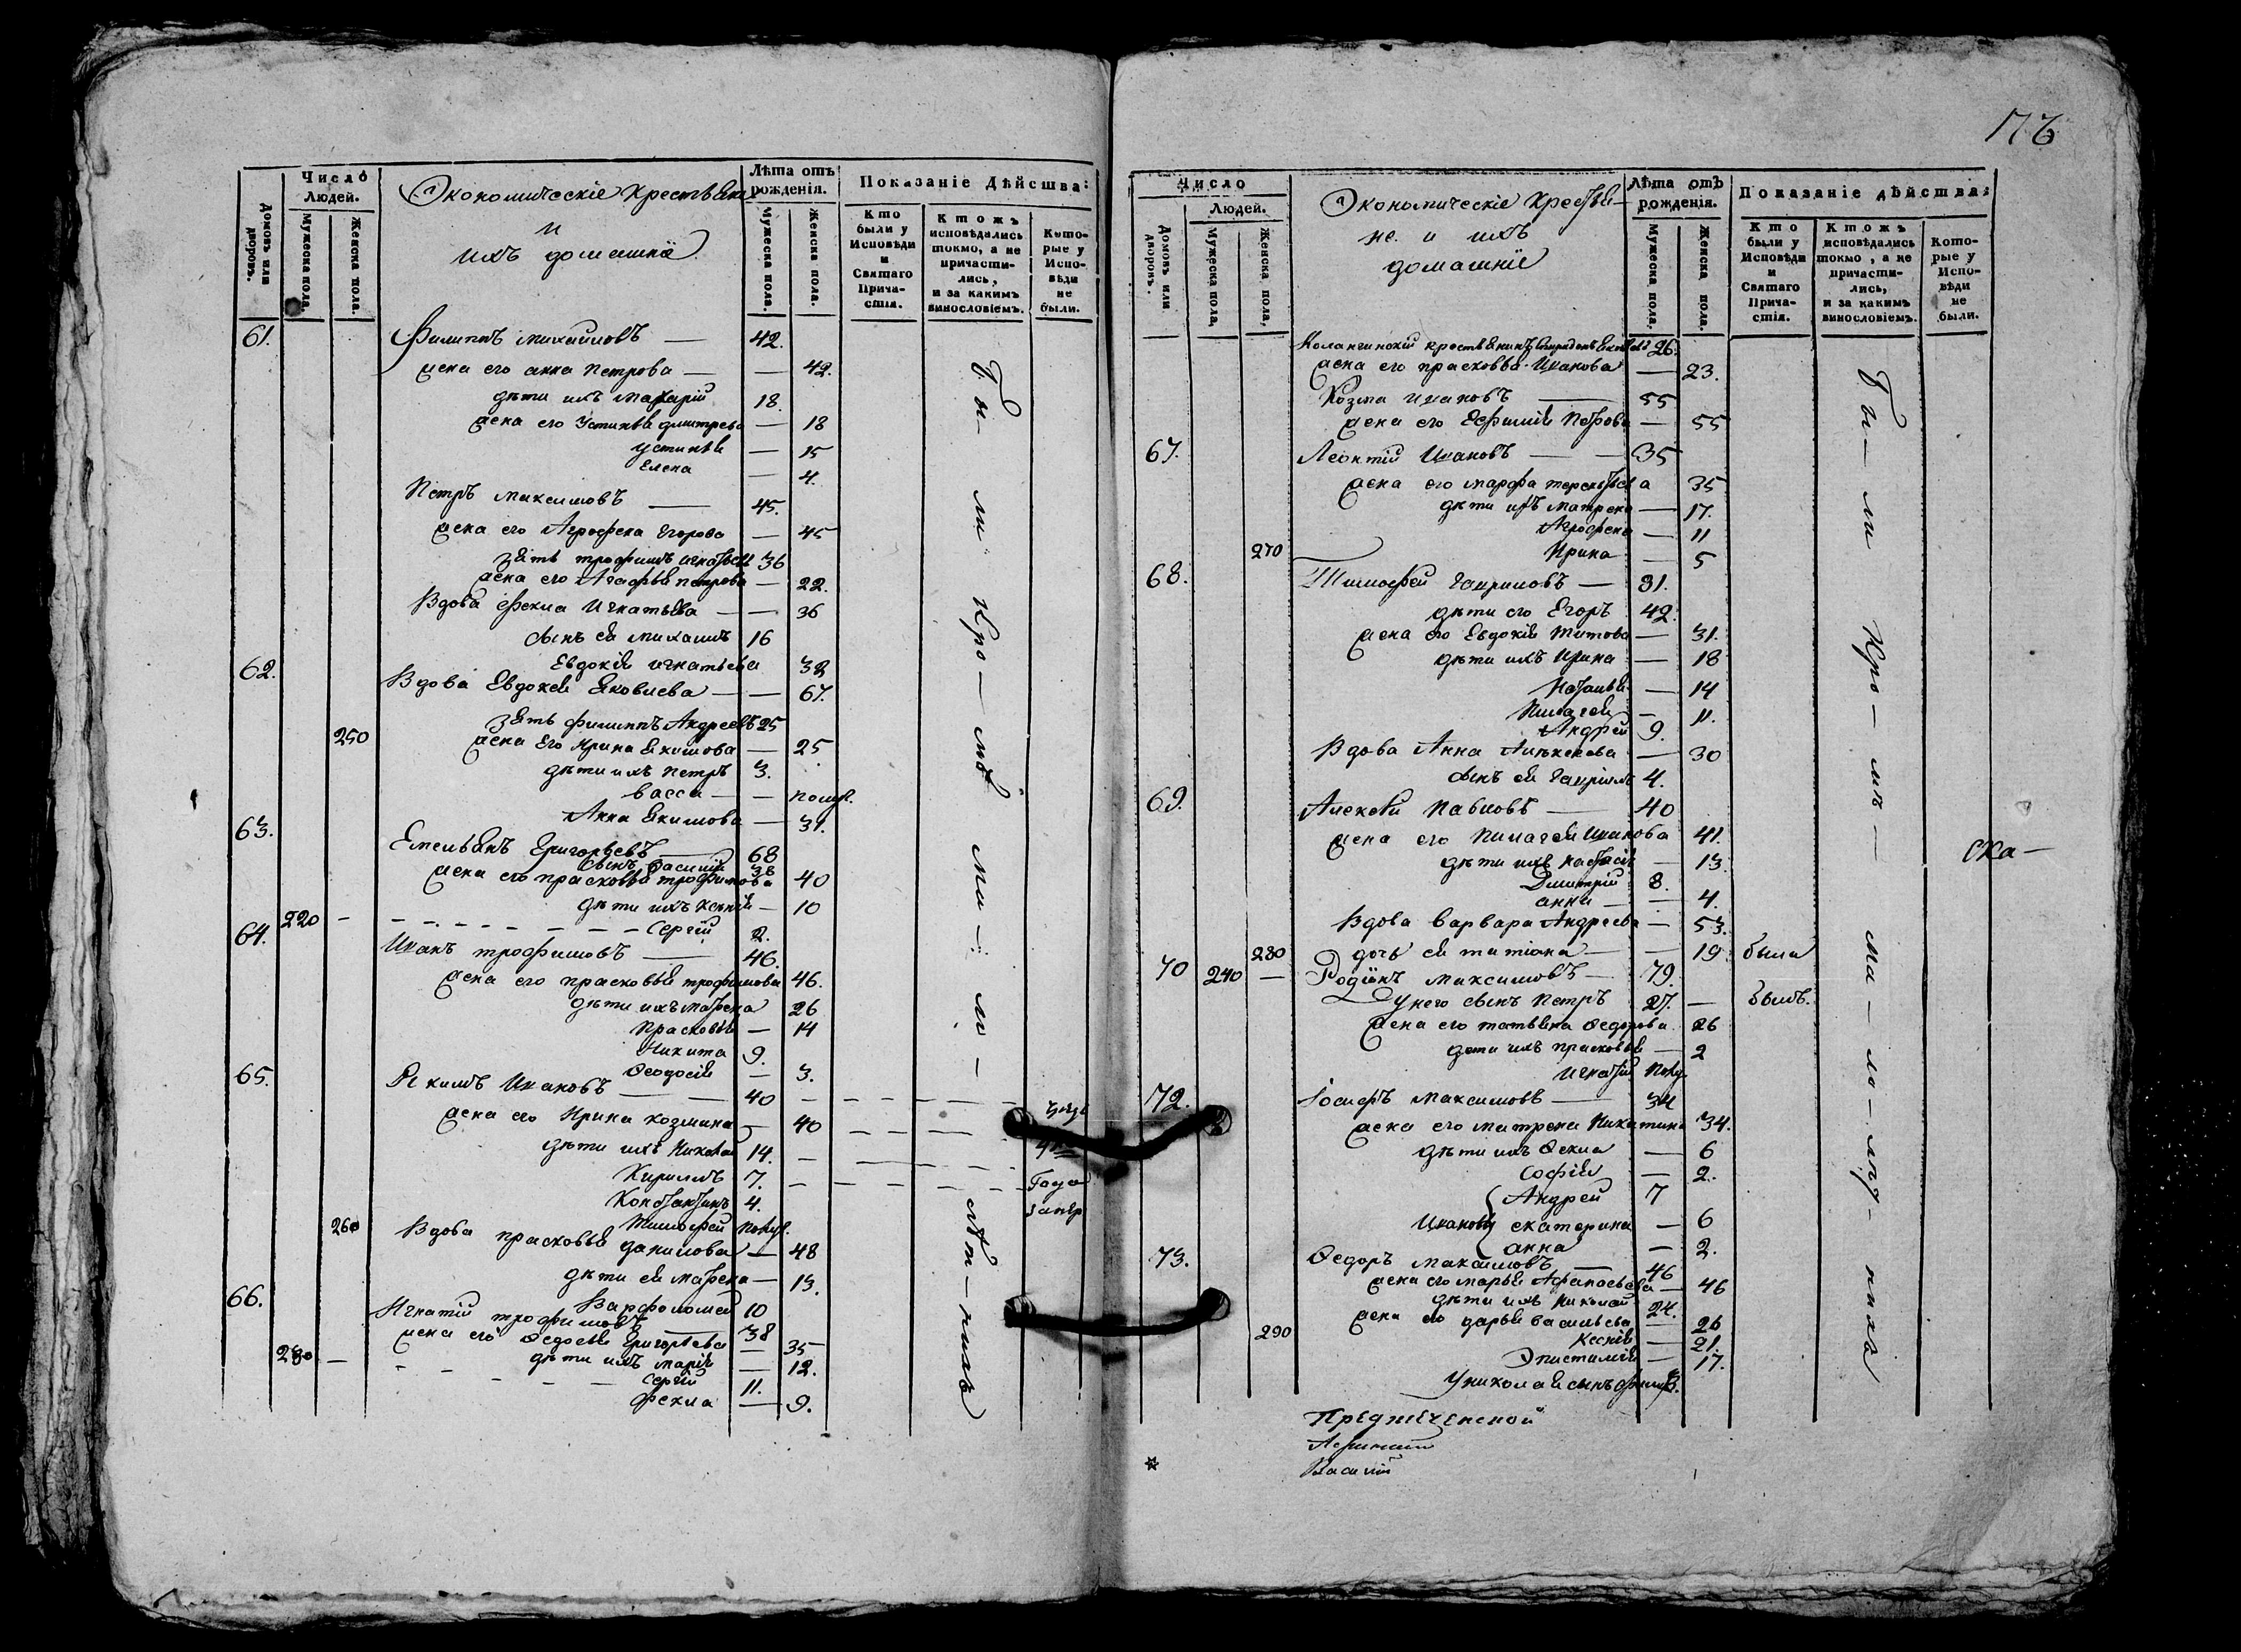 Число
Людей.
Домовъ или дворовъ.
Мужеска пола.
Женска пола.
Экономическіе крестьяне
и
ихъ домашніе
Лѣта отъ рожденія.
Мужеска пола.
Женска пола.
Показаніе Дѣйства:
Кто были у Исповѣди и Святаго Прича-стія.
Ктожъ исповѣдались токмо, а не причасти-лись, и за какимъ винословіемъ.
Кото-рые у Испо-вѣди не были.
61. Филиппъ Михайловъ — 42.
жена его анна Петрова — — 42.
дѣти ихъ Макарій 18.
жена его Устинья дмитрева — 18
устинья — 15
Елена — 4.
Петръ Максимовъ — 45.
жена его Агрофена Егорова — 45
зять трофимъ игнатьевъ 36
жена его Агафья петрова — 22.
Вдова Фекла Игнатьева — — 36
сынъ ея михаилъ 16
Евдокія игнатьева 32
62. Вдова Евдокея Яковлева — — 67.
зять филиппъ Андреевъ 25
250 жена Его Ирина Екимова — 25
дѣти ихъ Петръ 3.
васса — — полуг.
Анна Екимова — 31.
63. Емельянъ Григорьевъ — 68
сынъ василій 38
жена его прасковья трофимова 40
дѣти ихъ ксенія — 10
220 — Сергій 2.
64. Иванъ трофимовъ — 46.
жена его прасковья трофимова 46.
дѣти ихъ матрена 26
Прасковья — 14
Никита 9.
Ѳеодосія — 3.
65. Якимъ Ивановъ — 40
жена его Ирина козмина — 40
дѣти ихъ Николай 14.
Кирилъ 7.
Константинъ 4.
Тимофей полуг.
260 Вдова прасковья данилова — 48
дѣти ея матрена — 13.
Варфоломей 10
66. Игнатій трофимовъ 38
жена его Ѳедосья Григорьева — 35
230 — дѣти ихъ марія — 12.
Сергій 11.
фекла — 9.
Бы-ли
176
Число
Людей.
Домовъ или дворовъ.
Мужеска пола,
Женска пола,
Экономическіе крестья-
не. и ихъ
домашніе
Лѣта отъ рожденія.
Мужеска пола.
Женска пола.
Показаніе дѣйства:
Кто были у Исповѣди и Святаго Прича-стія.
Ктожъ исповѣдались токмо, а не причасти-лись, и за какимъ винословіемъ.
Кото-рые у Испо-вѣди не были.
крестьянинъ 26.
жена его прасковья Иванова — 23.
Козма ивановъ — 55
жена его Ефимія Петрова — 55
67. Леонтій Ивановъ — — 35
жена его марфа терентьева 35
дѣти ихъ матрена — 17.
Агрофена — 11
270 Ирина — 5
68. Тимофей Гавриловъ — 31.
дѣти его Егоръ 42.
жена его Евдокія титова — 31.
дѣти ихъ Ирина — 18
Наталья — 14
Пелагея — 11.
Андрей 9.
Вдова Анна Алексеева — 30
сынъ ея Гаврилъ 4.
69. Алексѣй Павловъ — 40
жена его Пелагея иванова 41.
дѣти ихъ настасія — 13
Дмитрій 8.
анна — — 4.
Вдова варвара Андреева — 53.
280 дочь ея татіана — — 19 была
70 240 — Родіонъ максимовъ — 79.
у него сынъ Петръ 27. — былъ.
жена его татьяна ѳедорова 26
дѣти ихъ прасковья — 2
игнатій полуг.
72. Іосифъ максимовъ — 34
жена его матрена Никитина 34.
дѣти ихъ Ѳекла — 6
Софія — 2.
Андрей 7
Ивановы екатерина — 6
анна — 2.
73. Ѳедоръ максимовъ — 46
жена его марья Афанасьева — 46
дѣти ихъ николай 24.
жена его дарья васильева — 26
290 ксенія — 21.
Эпистимія — 17.
у николая сынъ 3.
Бы-ли
ска-
Предтеченской
Василій